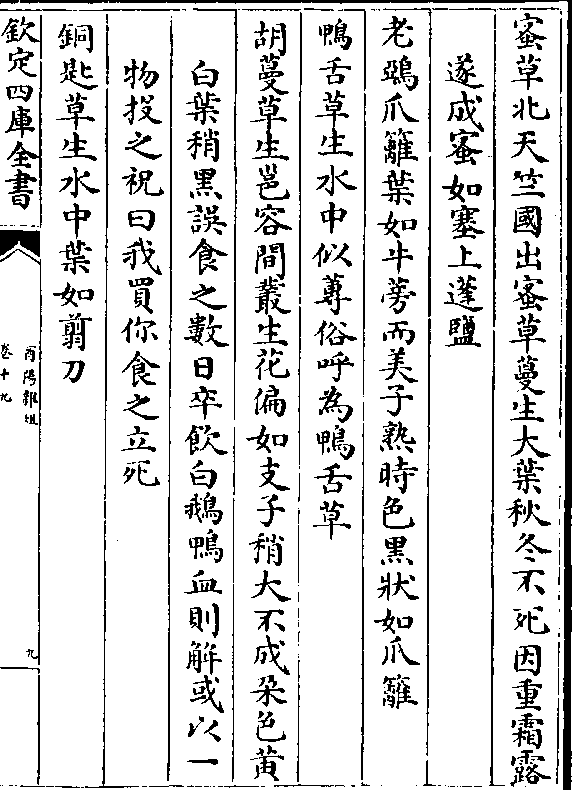 蜜草北天竺國出蜜草蔓生大葉秋冬不死因重霜露
遂成蜜如塞上蓬鹽
老鵶爪籬葉如牛蒡而美子熟時色黑狀如爪籬
鴨舌草生水中似蓴俗呼為鴨舌草
胡蔓草生邕容間叢生花偏如支子稍大不成朵色黃
白葉稍黑誤食之數日卒飲白鵝鴨血則解或以一
物投之祝曰我買你食之立死
銅匙草生水中葉如翦刀
欽定四庫全書
酉陽雜俎
卷十九
九